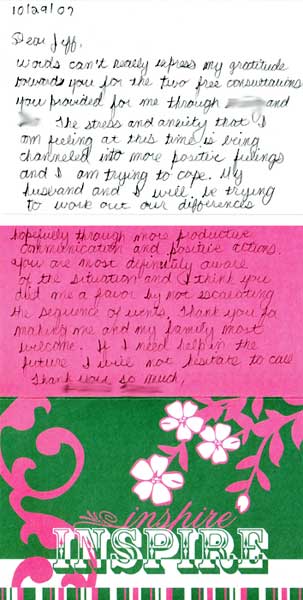 10/29/07
Dear Jeff,
Words can't really express my gratitude
towards you for the two free consultations
you provided for me through and
The stress and anxiety that I
am feeling at this time is being
channeled into more positive feelings
and I am trying to cope. My
husband and I will be trying
to work out our differences
hopefully through more productive
communication and positive actions.
You are most definitely aware
of the situation and I think you
did me a favor by not escalating
the sequence of events. Thank you for
making me and my family most
welcome. If I need help in the
future I will not hesitate to call
Thank you so much,
inspire
INSPIRE